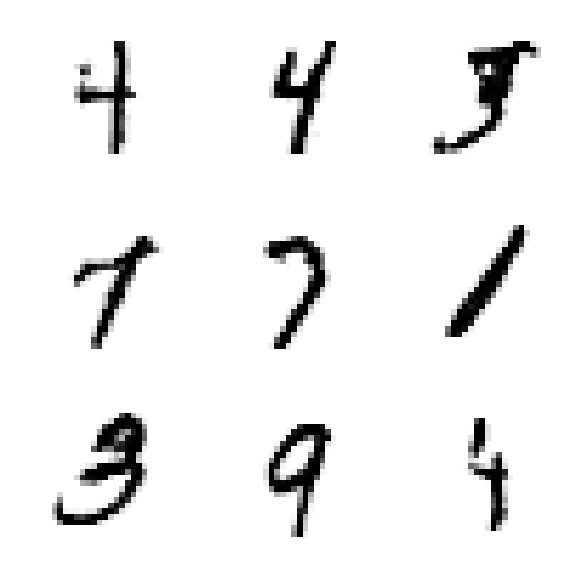 4 4 5
7 7 1
3 9 4